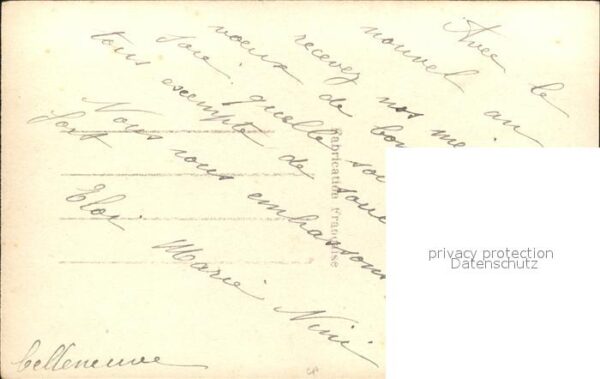 Avec le
nouvel an
recevez nos me
voeux de bon
joie quelle soi
tous exempte de souc
Nous vous embrassons
fort
Eloi Marie Nini
belleneuve
Fabrication Française
privacy protection
Datenschutz